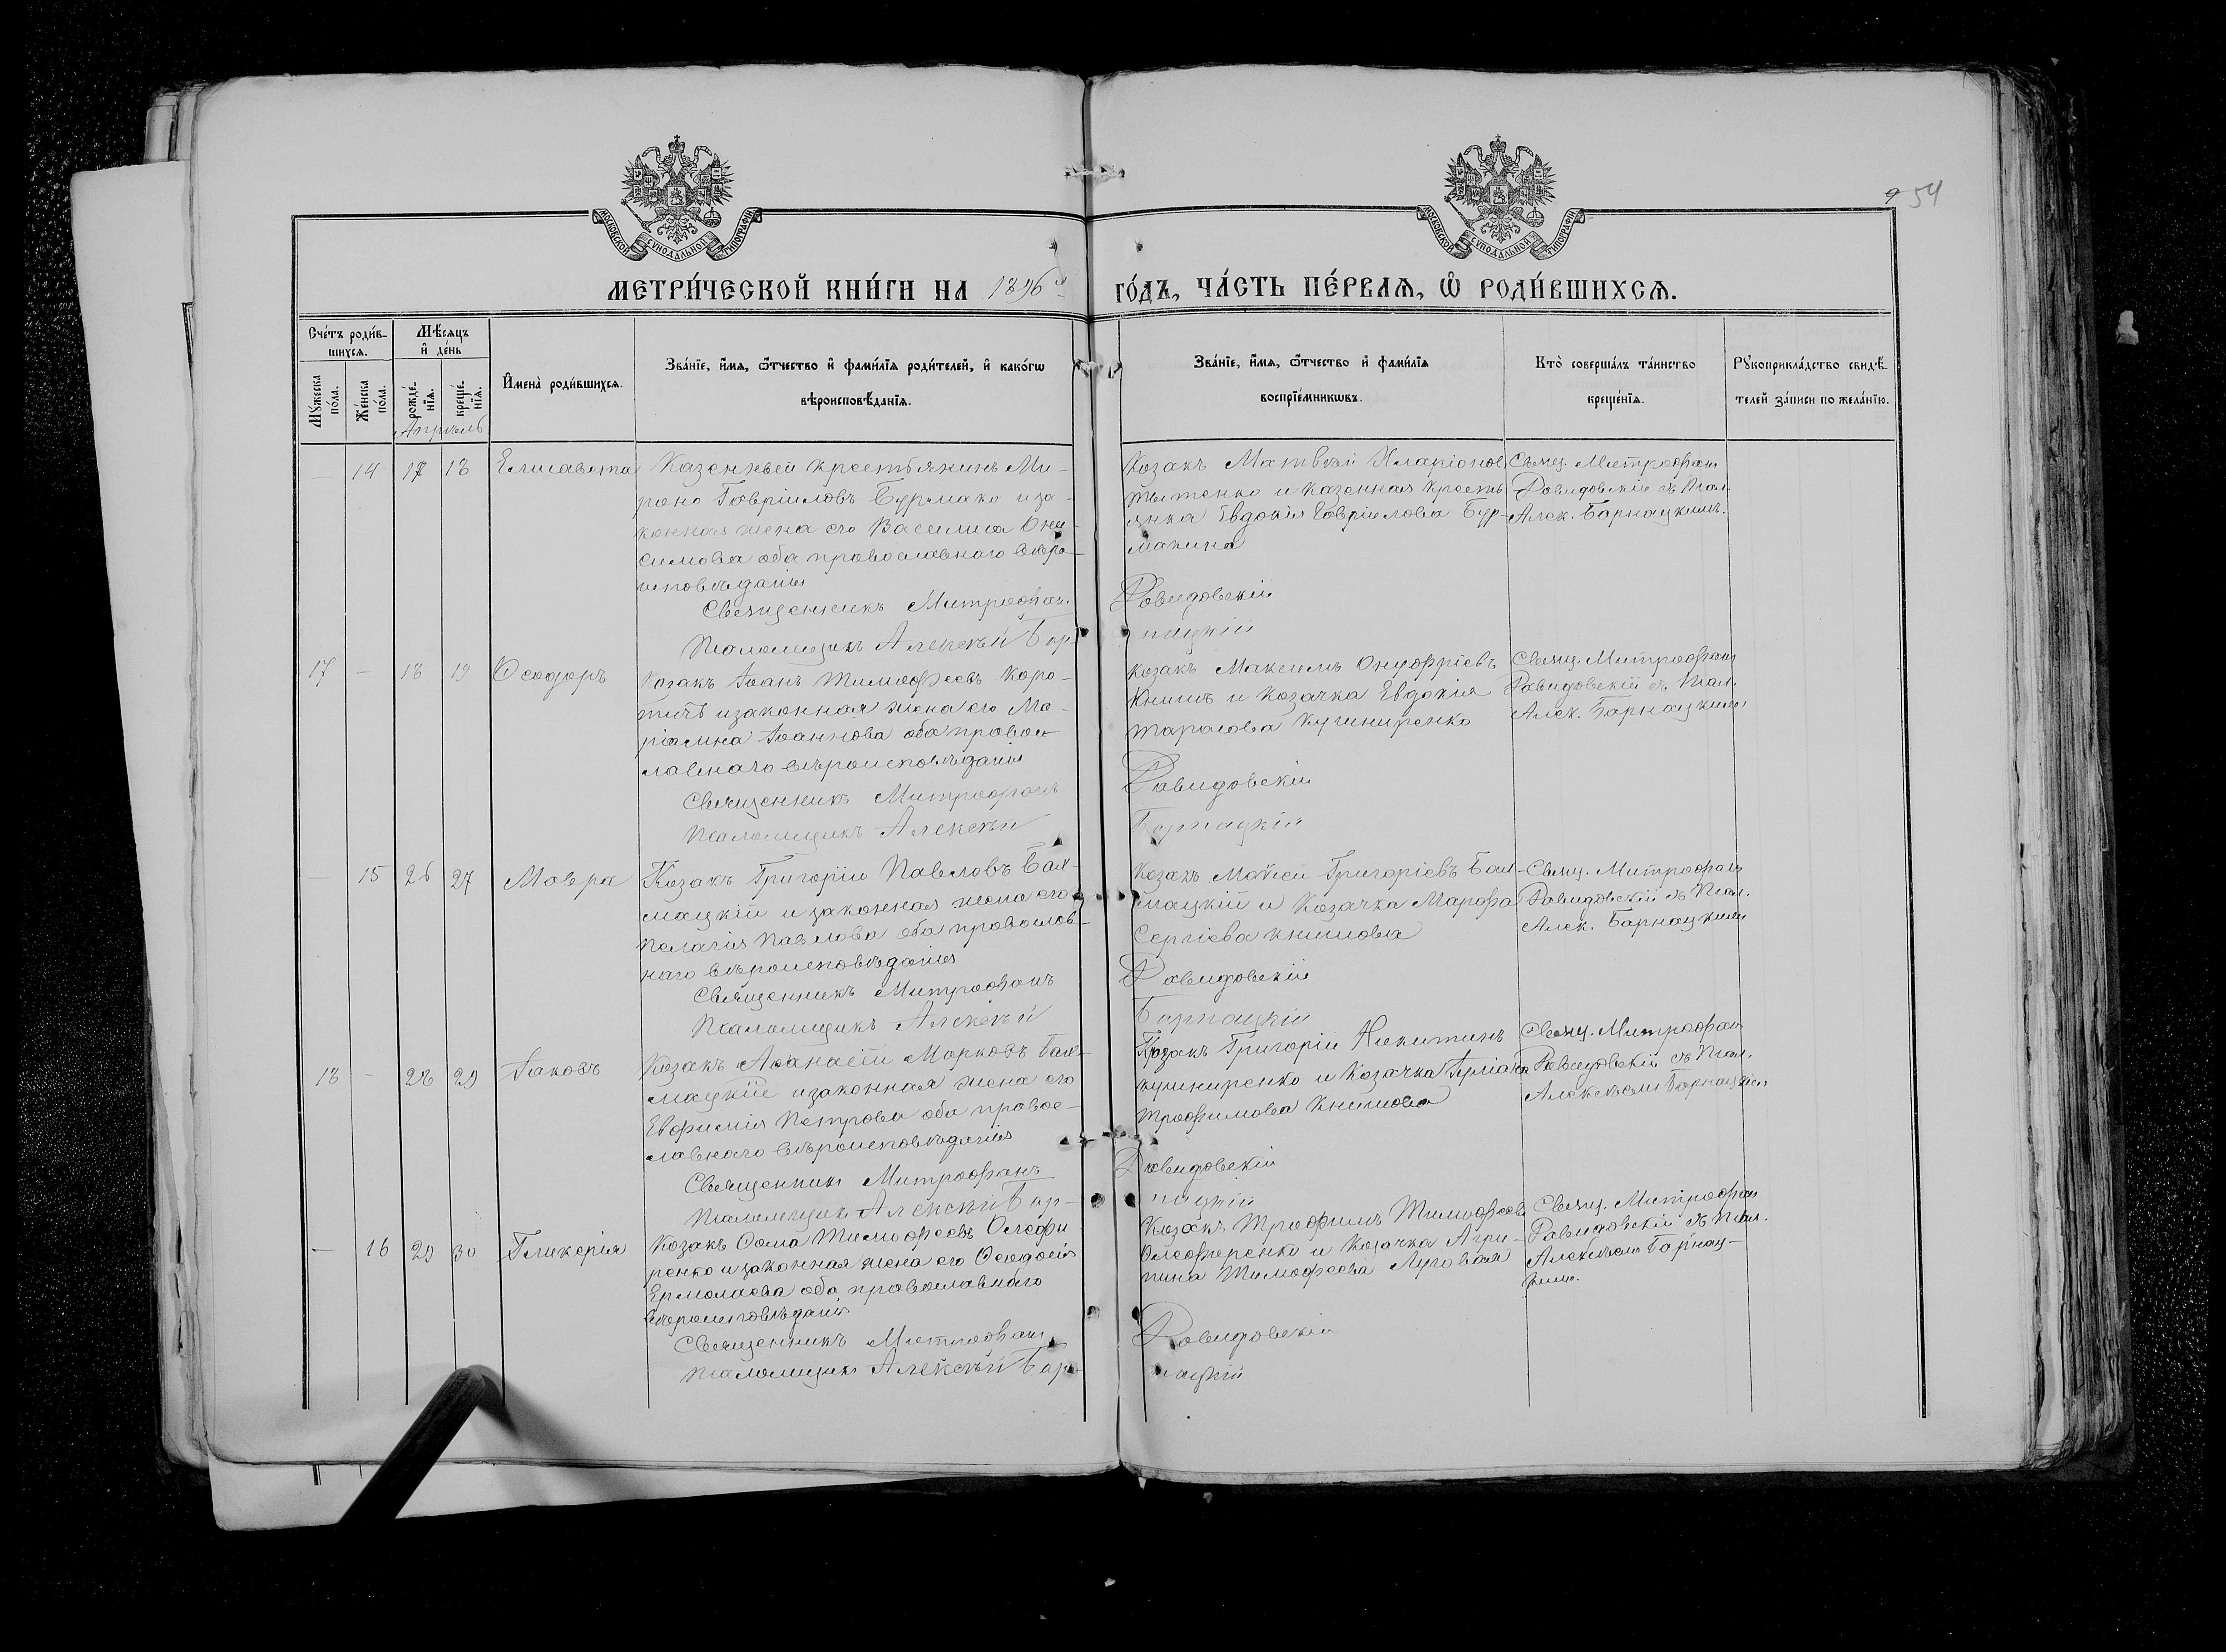 54
МОСКОВСКОЙ СѴНОДАЛЬНОЙ ТИПОГРАФІИ
МОСКОВСКОЙ СѴНОДАЛЬНОЙ ТИПОГРАФІИ
МЕТРИ́ЧЕСКОЙ КНИ́ГИ НА 1896й ГО́ДЪ, ЧА́СТЬ ПЕ́РВАЯ, Ѡ҆ РОДИ́ВШИХСЯ.
Сче́тъ роди́в-
шихся.
Мꙋжеска по́ла.
Же́нска по́ла.
Мѣ́сяцъ
и҆ де́нь
рожде́-
нїя.
креще́-
нїя.
Апрель
И҆мена̀ роди́вшихся.
Зва́нїе, и҆́мя, ѻ҆́тчество и҆ фами́лїя роди́телей, и҆ како́гѡ
вѣроисповѣ́данїя.
Зва́нїе, и҆́мя, ѻ҆́тчество и҆ фами́лїя
воспрїе́мникѡвъ.
Кто̀ соверша́лъ та́инство
креще́нїя.
Рꙋкоприкла́дство свидѣ́-
телей за́писи по жела́нїю.
— 14 17 18 Елисавета
Казенный крестьянинъ Ми-
ронъ Гавріиловъ Бурмака и за-
конная жена его Василиса Они-
симова оба православного веро-
исповѣданія
Священникъ Митрофанъ
Псаломщикъ Алексѣй Бар-
Козакъ Матвѣй Иларіоновъ
и казенная крестья-
янка Евдокія Гавріилова Бур-
макина
Давидовскій
нацкій
Свящ. Митрофанъ
Давидовскій съ Псал.
Алек. Барнацкимъ.
17 — 18 19 Ѳеодоръ
Козакъ Іоанъ Тимофеевъ Коро-
тичъ и законная жена его Ма-
ріамна Іоаннова оба правос-
лавнаго вѣроисповѣданія
Священникъ Митрофанъ
Псаломщикъ Алексѣй
Козакъ Максимъ Онуфріевъ
Книшъ и Козачка Евдокія
Тарасова Кушниренко
Давидовскій
Барнацкій
Свящ. Митрофанъ
Давидовскій съ Псал.
Алек. Барнацкимъ
— 15 26 27 Мавра
Козакъ Григорій Павловъ Бал-
мацкій и законная жена его
Пелагія Павлова оба православ-
наго вѣроисповѣданія
Священникъ Митрофанъ
Псаломщикъ Алексѣй
Козакъ Моисей Григоріевъ Бал-
мацкій и Козачка Марфа
Сергіева Книшова
Давидовскій
Барнацкій
Свящ. Митрофанъ
Давидовскій съ Псал.
Алек. Барнацкимъ
18 — 28 29 Іаковъ
Козакъ Аѳанасій Марковъ Бал-
мацкій и законная жена его
Евфимія Петрова оба правос-
лавнаго вѣроисповѣданія
Священникъ Митрофанъ
Псаломщикъ Алексѣй Бар-
Козакъ Григорій Никитинъ
Кушниренко и Козачка
Трофимова Книшова
Давидовскій
нацкій
Свящ. Митрофанъ
Давидовскій съ Псал.
Алексѣемъ Барнацкимъ
— 16 29 30 Гликерія
Козакъ Ѳома Тимофеевъ Олефи-
ренко и законная жена его Ѳеодосія
Ермолаева оба православнаго
вѣроисповѣданія
Священникъ Митрофанъ
Псаломщикъ Алексѣй Бар-
Козакъ Трофимъ Тимофеевъ
Олефиренко и Козачка Агри-
пина Тимофеева Луговая
Давидовскій
нацкій
Свящ. Митрофанъ
Давидовскій съ Псал.
Алексѣемъ Барнац-
кимъ.